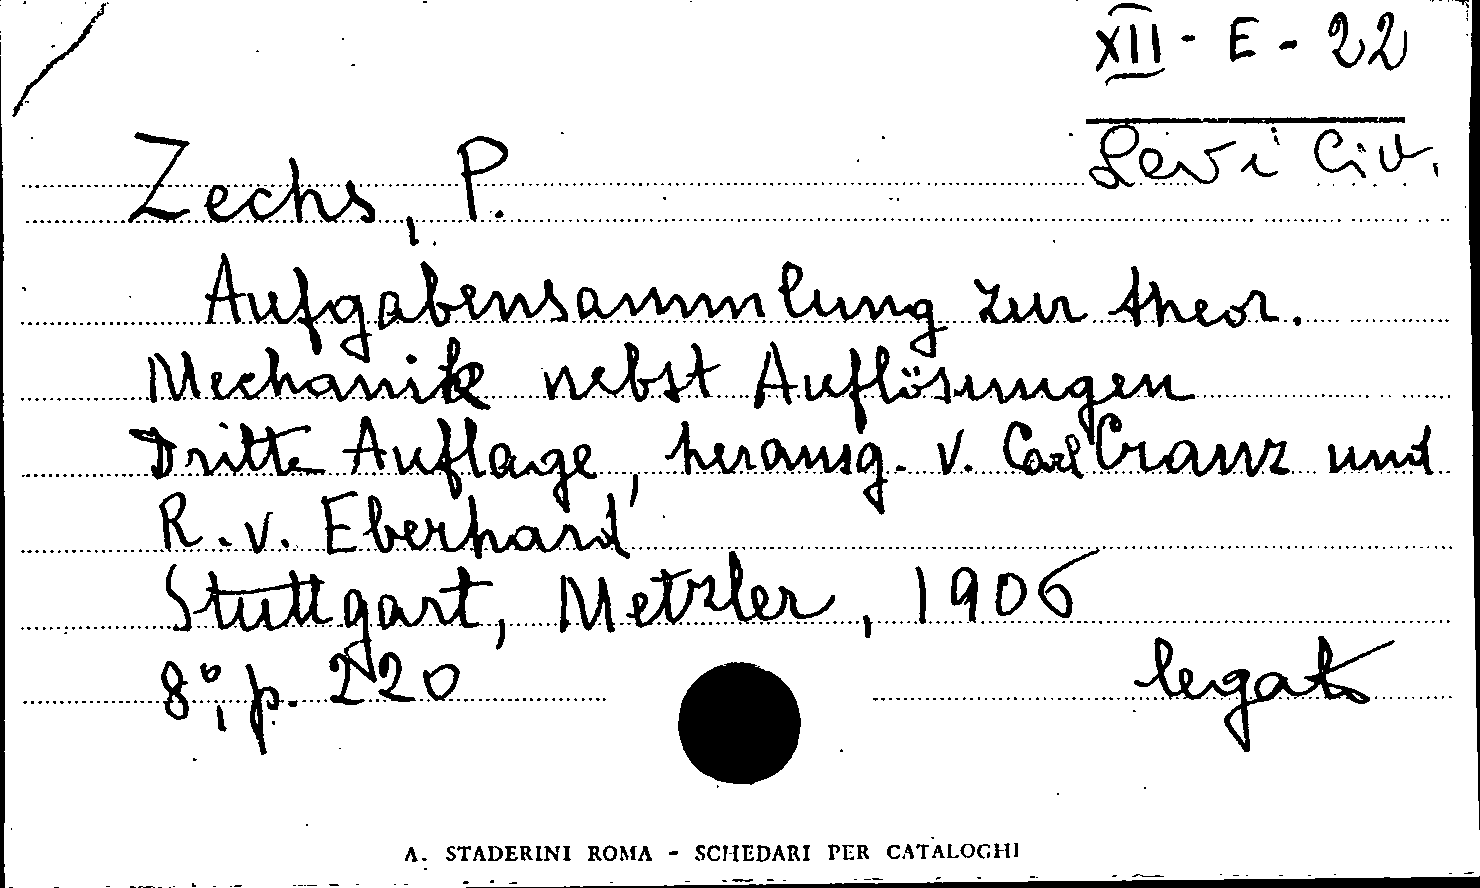 XII - E - 22
Levi Civ.
Zechs, P.
Aufgabensammlung zur theor.
Mechanik nebst Auflösungen
Dritte Auflage, herausg. v. Carl Cranz und
R. v. Eberhard
Stuttgart, Metzler, 1906
8°, p. 220
legato
A. STADERINI ROMA - SCHEDARI PER CATALOGHI